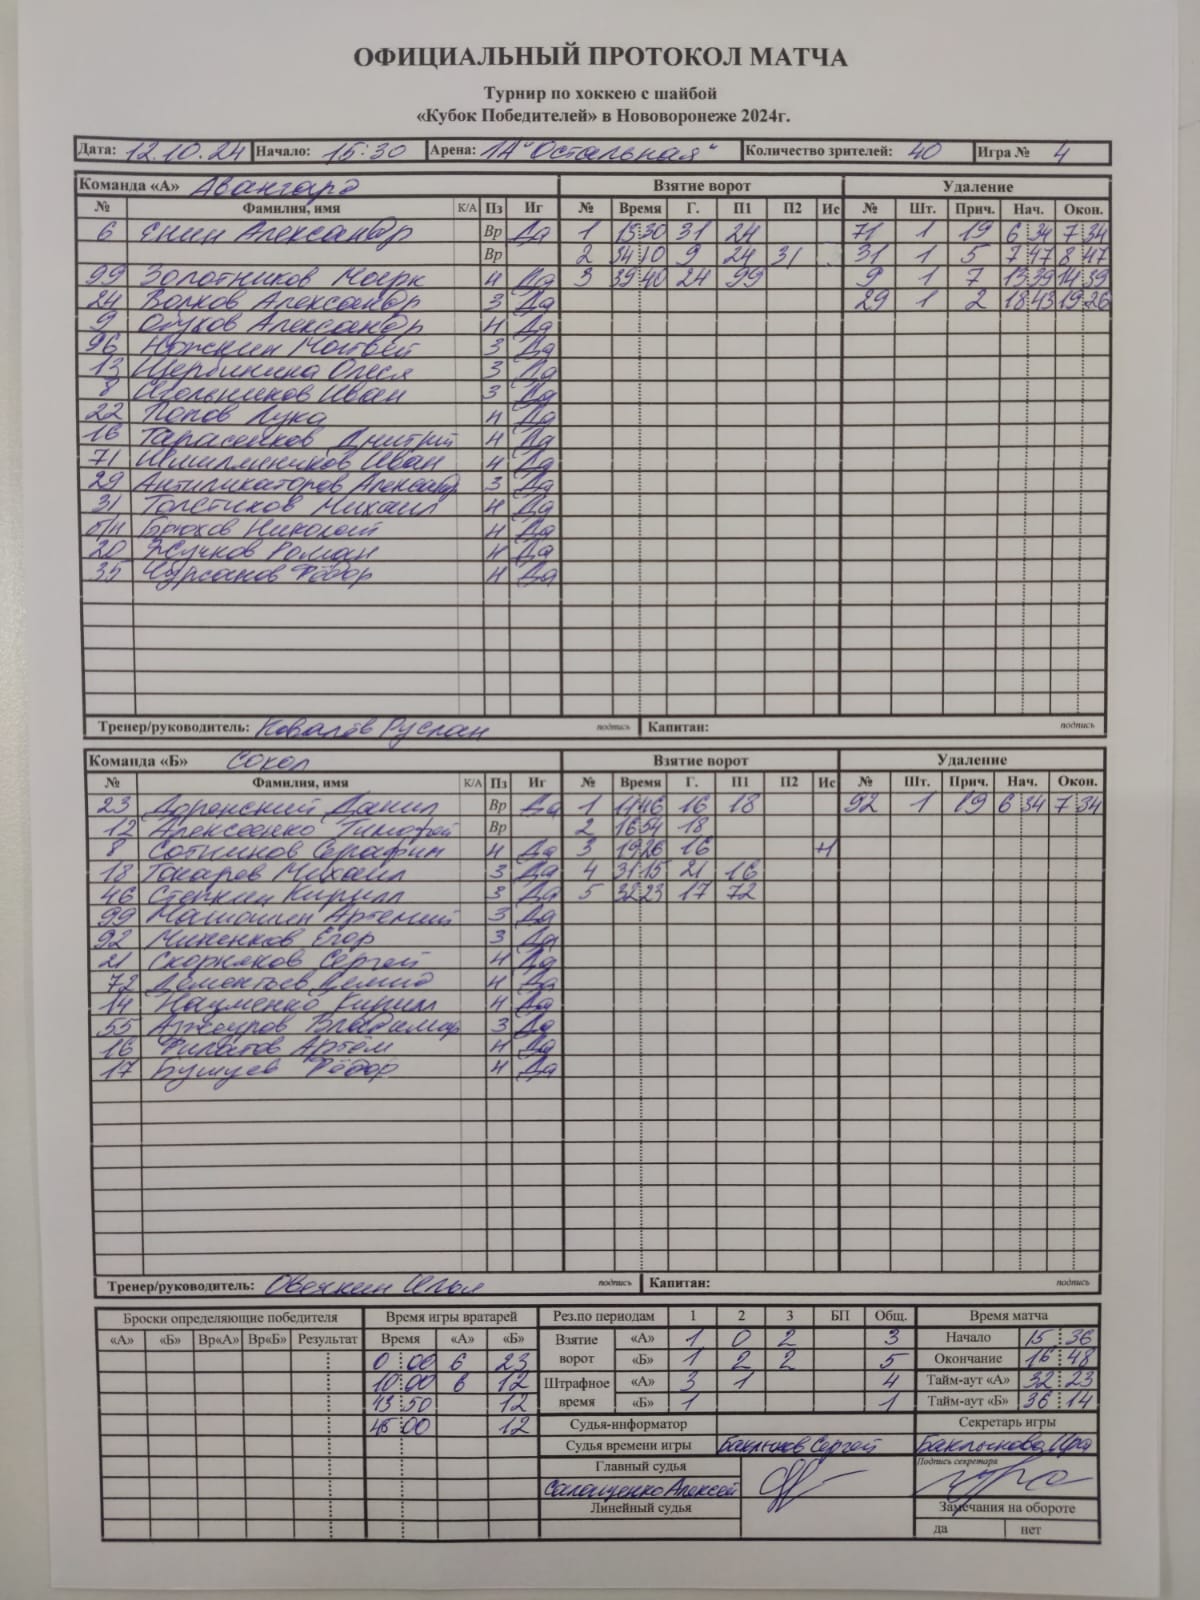 ОФИЦИАЛЬНЫЙ ПРОТОКОЛ МАТЧА
Турнир по хоккею с шайбой
«Кубок Победителей» в Нововоронеже 2024г.
Дата: 12.10.24 Начало: 15:30 Арена: ЛА "Остальная" Количество зрителей: 40 Игра № 4
Команда «А» Авангард Взятие ворот Удаление
№ Фамилия, имя К/А Пз Иг № Время Г. П1 П2 Ис № Шт. Прич. Нач. Окон.
6 Енин Александр Вр Да 1 15 30 31 24 71 1 19 6 34 7 34
Вр 2 34 10 9 24 31 31 1 5 7 47 8 47
99 Золотников Марк Н Да 3 39 40 24 99 9 1 7 13 39 14 39
24 Волков Александр З Да 29 1 2 18 43 19 26
9 Обухов Александр Н Да
96 Ножкин Матвей З Да
13 Щербинина Олеся З Да
8 Игольников Иван З Да
22 Попов Лука Н Да
16 Тарасенков Дмитрий Н Да
71 Иван Н Да
29 Александр З Да
31 Толстиков Михаил Н Да
б/н Брюхов Николай Н Да
20 Жучков Роман Н Да
35 Чурсанов Фёдор Н Да
Тренер/руководитель: Ковалёв Руслан подпись Капитан: подпись
Команда «Б» Сокол Взятие ворот Удаление
№ Фамилия, имя К/А Пз Иг № Время Г. П1 П2 Ис № Шт. Прич. Нач. Окон.
23 Данил Вр Да 1 16 18 92 1 19 6 34 7 34
12 Алексеенко Тимофей Вр 2 16 54 18
8 Серафим Н Да 3 19 26 16 +1
18 Токарев Михаил З Да 4 31 15 21 16
46 Стёпкин Кирилл З Да 5 32 23 17 72
99 Артемий З Да
92 Миненков Егор З Да
21 Скорняков Сергей Н Да
72 Дементьев Демид Н Да
14 Науменко Кирилл Н Да
55 Владимир З Да
16 Филатов Артём Н Да
17 Бушуев Фёдор Н Да
Тренер/руководитель: Овечкин Илья подпись Капитан: подпись
Броски определяющие победителя Время игры вратарей Рез.по периодам 1 2 3 БП Общ. Время матча
«А» «Б» Вр«А» Вр«Б» Результат Время «А» «Б» Взятие ворот «А» 1 0 2 3 Начало 15 36
0 00 6 23 «Б» 1 2 2 5 Окончание 16 48
10 00 6 12 Штрафное время «А» 3 1 4 Тайм-аут «А» 32 23
43 50 12 «Б» 1 1 Тайм-аут «Б» 36 14
45 00 12 Судья-информатор Секретарь игры
Судья времени игры Баклыков Сергей Баклыкова Ира
Главный судья Подпись секретаря
Салащенко Алексей
Линейный судья Замечания на обороте
да нет